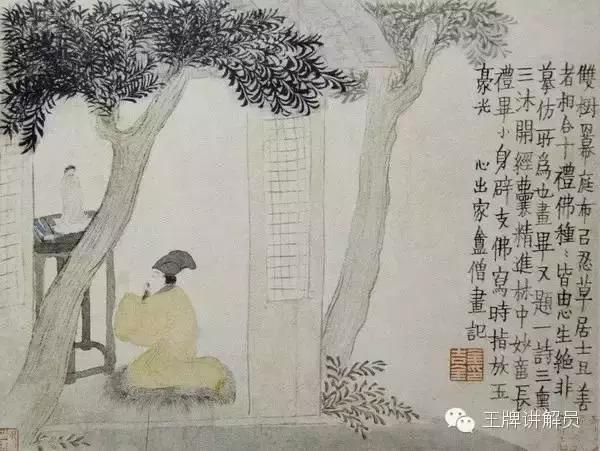 雙樹羃庭布召忍草居士且善
者相合十禮佛種〻皆由思生絕非
摹仿所為也畫畢又題一詩三熏
三沐開經囊精進林中妙啬長
禮畢小身辟支佛寫時指放五
豪光　心出家盦僧畫記
王牌讲解员